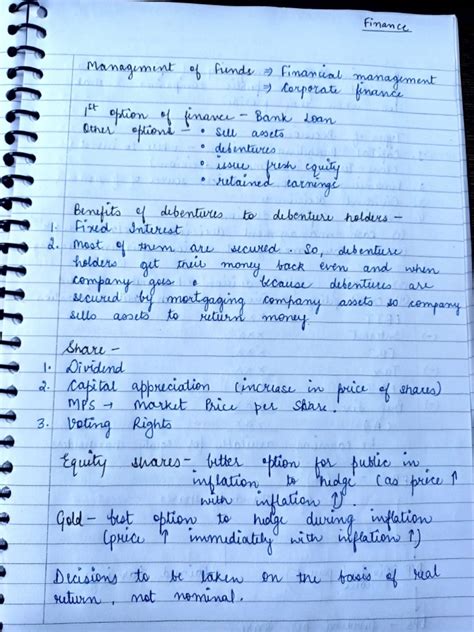 Finance
Management of Funds ⇒ Financial management
⇒ Corporate finance
1st option of finance – Bank Loan
Other options – • sell assets
• debentures
• issue fresh equity
• retained earnings
Benefits of debentures to debenture holders –
1. Fixed Interest
2. Most of them are secured. So, debenture
holders get their money back even and when
company goes • because debentures are
secured by mortgaging company assets so company
sells assets to return money
Share –
1. Dividend
2. Capital appreciation (increase in price of shares)
MPS → Market Price per Share.
3. Voting Rights
Equity shares – better option for public in
inflation to hedge (as price ↑
with inflation ↑).
Gold – best option to hedge during inflation
(price ↑ immediately with inflation ↑)
Decisions to be taken on the basis of real
return, not nominal.